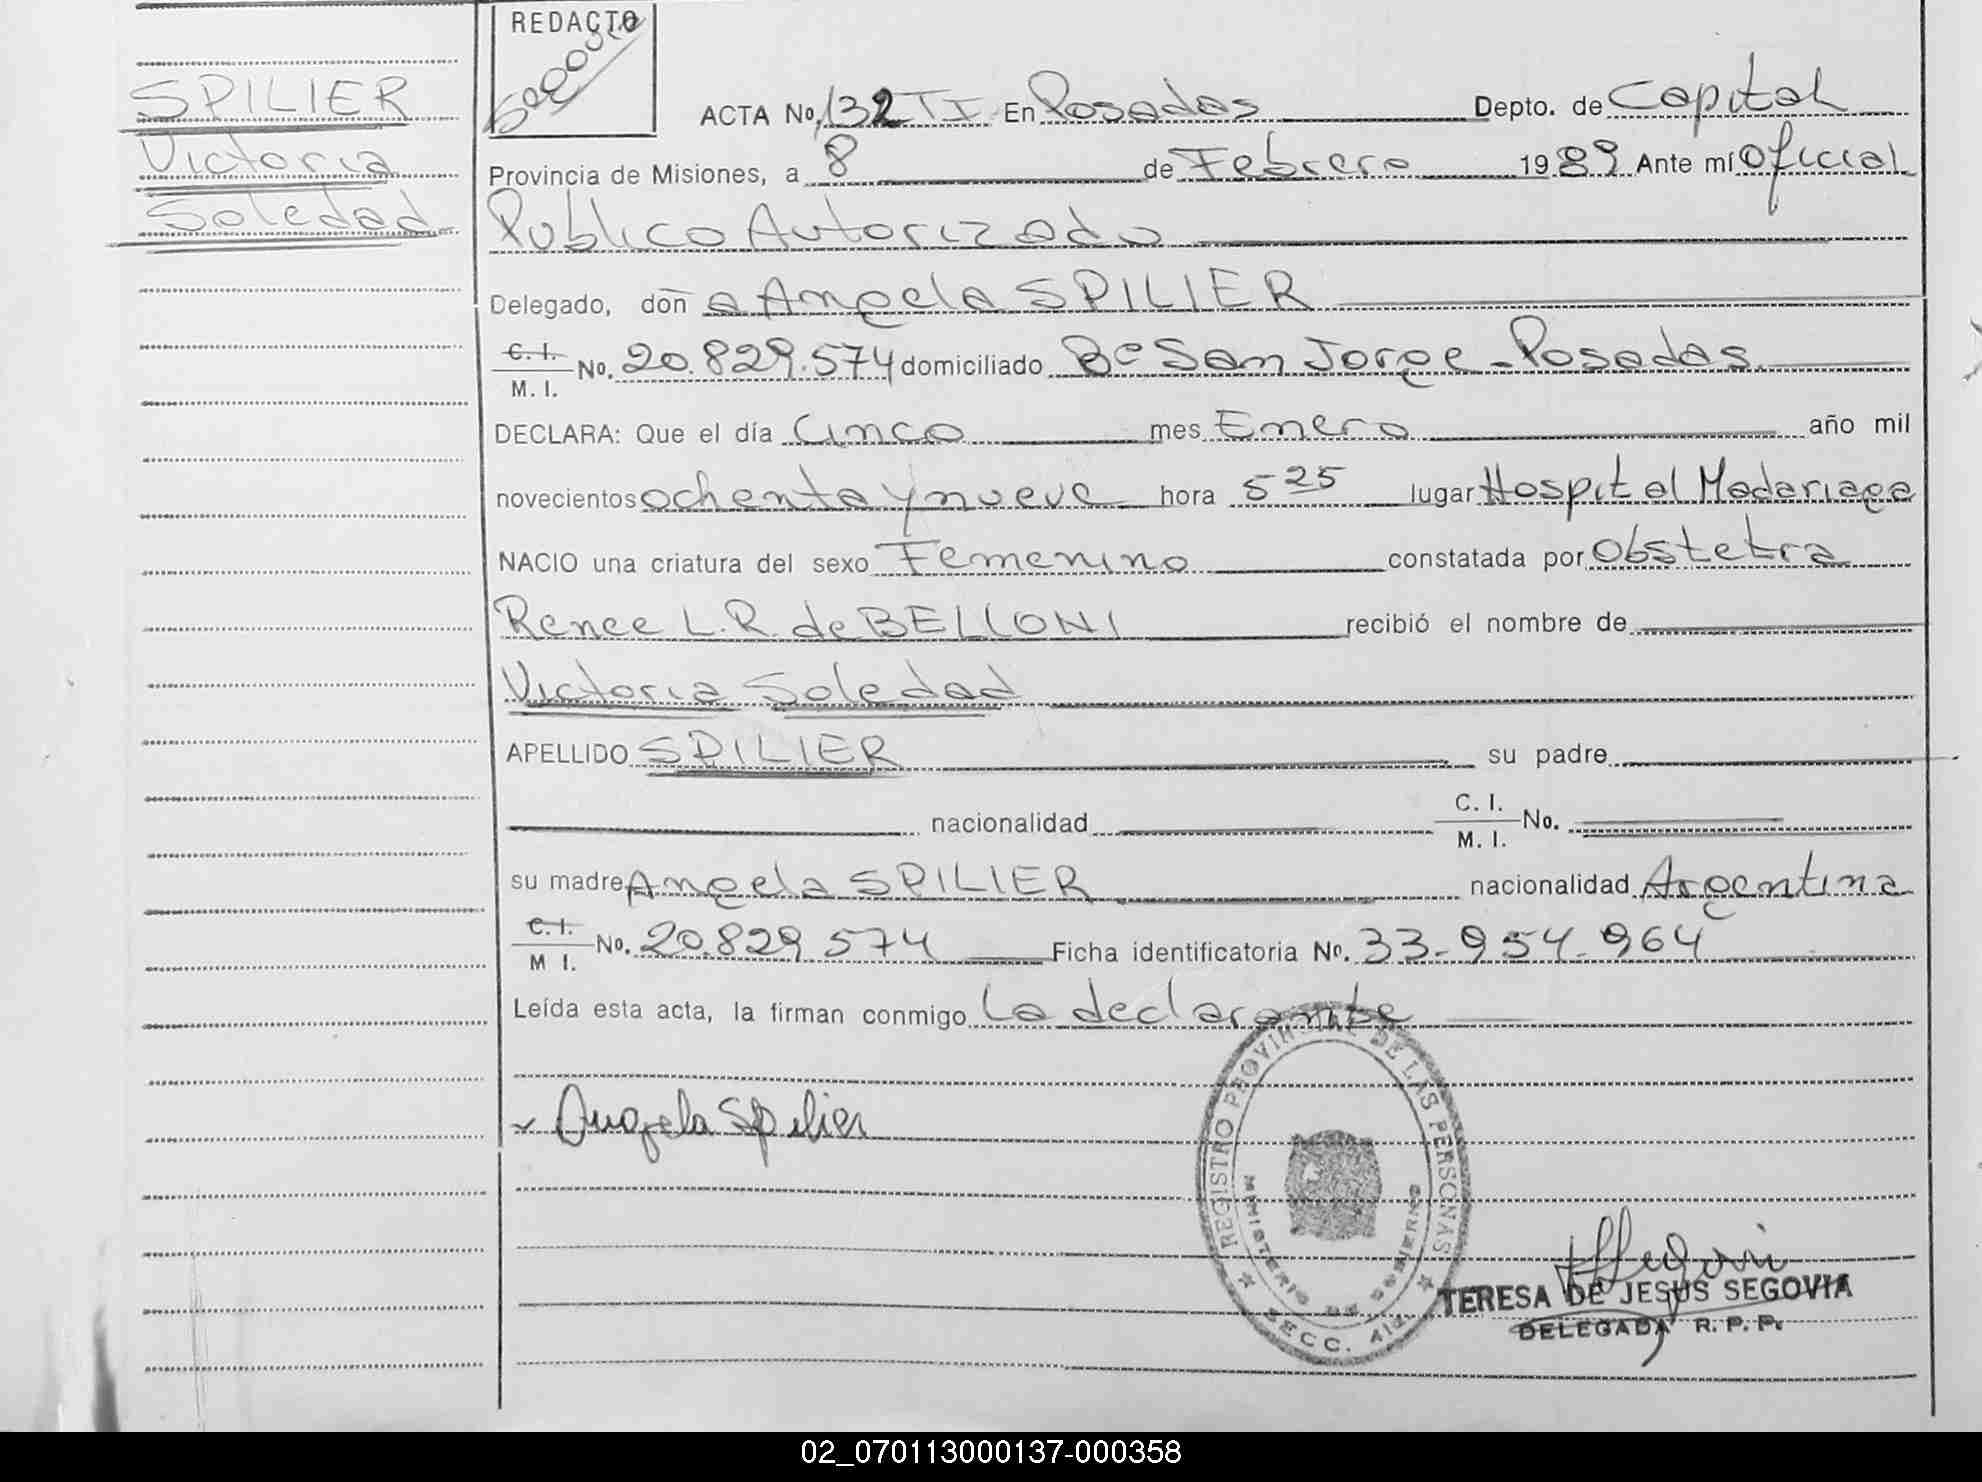 SPILIER
Victoria
Soledad
REDACTO
ACTA No. 132 TI En Posadas Depto. de Capital
Provincia de Misiones, a 8 de Febrero 1989 Ante mí Oficial
Publico Autorizado
Delegado, don a Angela SPILIER
C. I.
M. I. No. 20.829.574 domiciliado Bº San Jorge - Posadas
DECLARA: Que el día Cinco mes Enero año mil
novecientos ochenta y nueve hora 5 25 lugar Hospital Madariaga
NACIO una criatura del sexo Femenino constatada por Obstetra
Renee L. R. de BELLONI recibió el nombre de
Victoria Soledad
APELLIDO SPILIER su padre
nacionalidad C. I.
M. I. No.
su madre Angela SPILIER nacionalidad Argentina
C. I.
M I. No. 20.829.574 Ficha identificatoria No. 33-954-964
Leída esta acta, la firman conmigo La declarante
Angela Spilier
REGISTRO PROVINCIAL DE LAS PERSONAS
MINISTERIO DE GOBIERNO
SECC.
TERESA DE JESUS SEGOVIA
DELEGADA R. P. P.
02_070113000137-000358